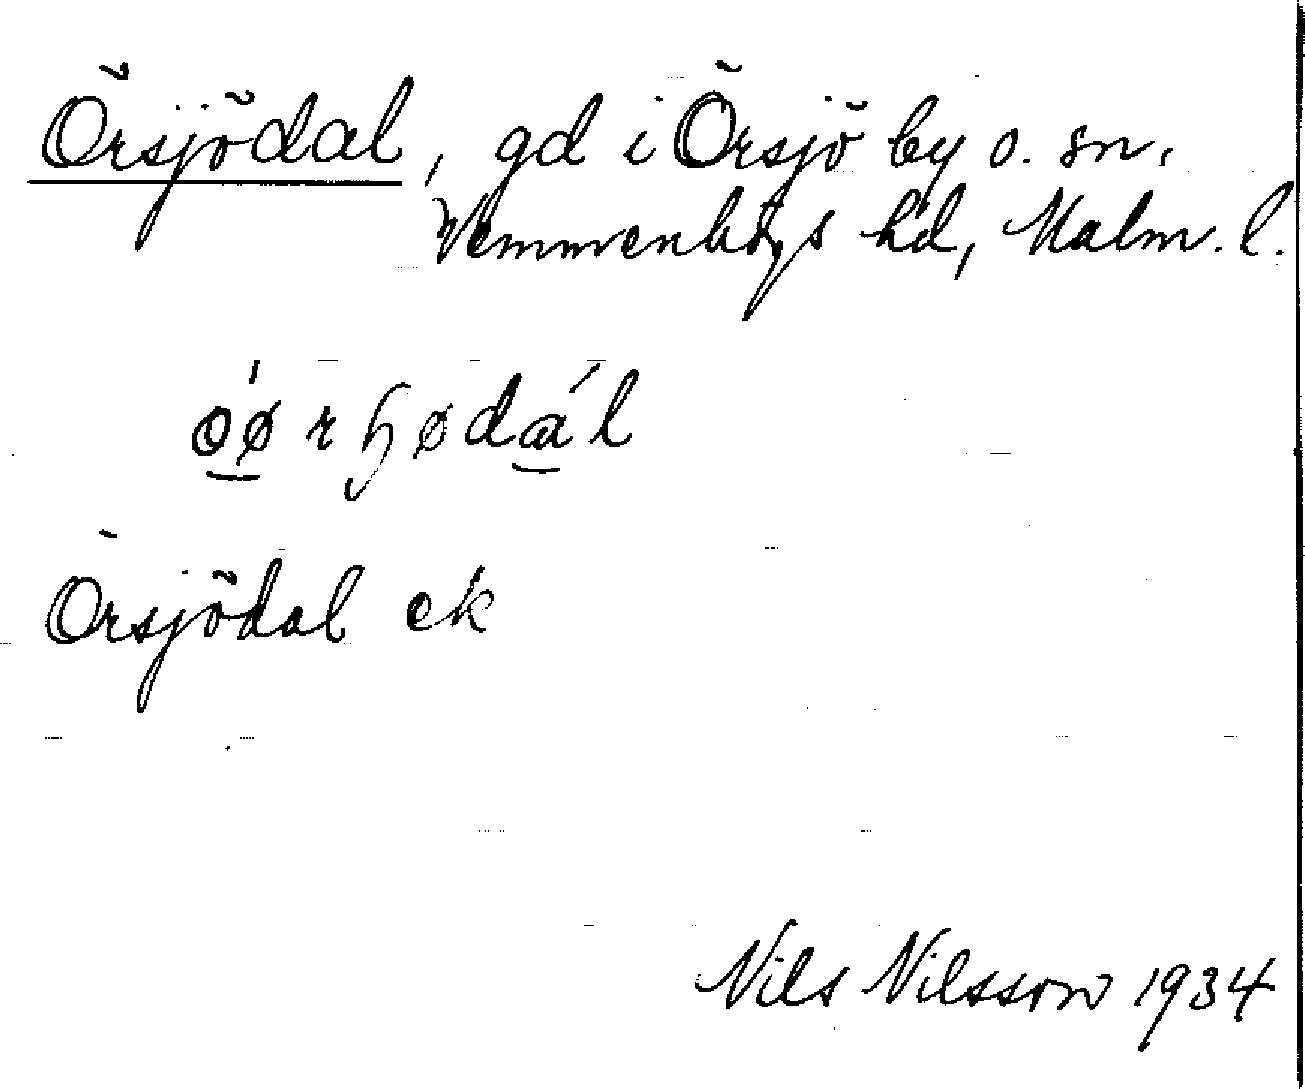 Örsjödal, gd i Örsjö by o. sn.
Vemmenhögs hd, Malm. l.
oǿrꜧødaál
Örsjödal ek
Nils Nilsson 1934